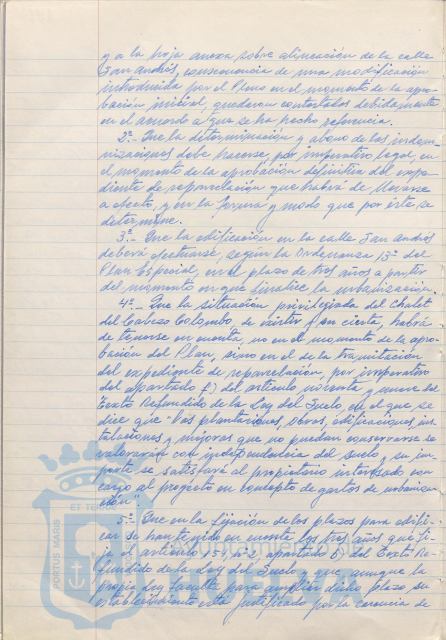 y a la hoja anexa sobre alineación de la calle
San Andrés, consecuencia de una modificación
introducida por el Pleno en el momento de la apro-
bación inicial, quedaron contestados debidamente
en el acuerdo a que se ha hecho referencia.
2º.- Que la determinación y abono de las indem-
nizaciones debe hacerse, por imperativo legal, en
el momento de la aprobación definitiva del expe-
diente de reparcelación que habrá de llevarse
a efecto, y en la forma y modo que por éste se
determine.
3º.- Que la edificación en la calle San Andrés
deberá efectuarse, según la Ordenanza 13ª del
Plan Especial, en el plazo de tres años a partir
del momento en que finalice la urbanización.
4º.- Que la situación privilegiada del Chalet
del Cabezo Colombo, de existir y ser cierta, habrá
de tenerse en cuenta, no en el momento de la apro-
bación del Plan, sino en el de la tramitación
del expediente de reparcelación, por imperativo
del apartado f) del artículo noventa y nueve del
Texto Refundido de la Ley del Suelo en el que se
dice que "las plantaciones, obras, edificaciones, ins-
talaciones y mejoras que no puedan conservarse se
valorarán con independencia del suelo y su im-
porte se satisfará al propietario interesado con
cargo al proyecto en concepto de gastos de urbaniza-
ción"
5º.- Que en la fijación de los plazos para edifi-
car se han tenido en cuenta los tres años que fi-
ja el artículo 154, nº 2, apartado b) del Texto Re-
fundido de la Ley del Suelo y que aunque la
propia Ley faculta para ampliar dicho plazo, su
establecimiento está justificado por la carencia de
PORTUS MARIS
ET TERRAE